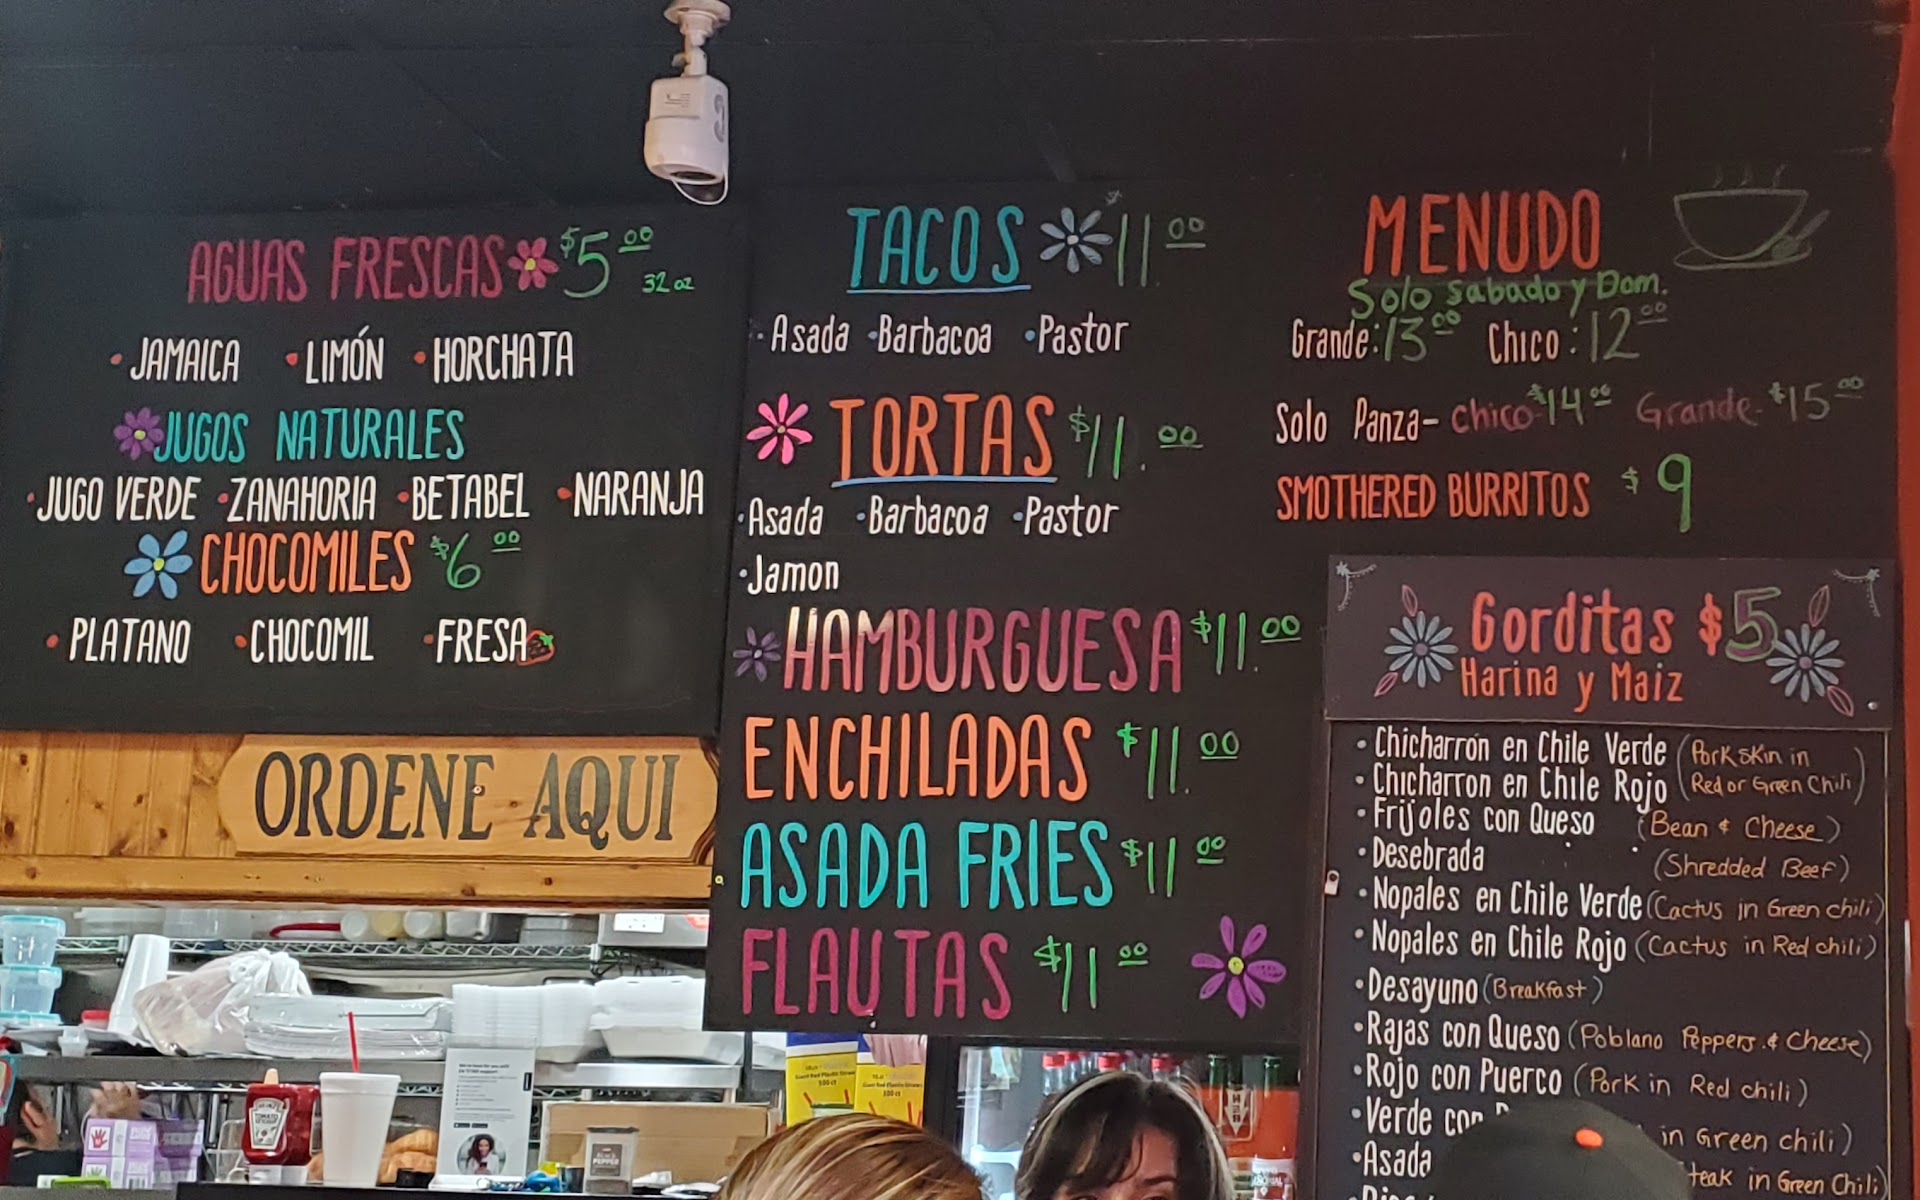 AGUAS FRESCAS $5.00
32 oz
• JAMAICA • LIMÓN • HORCHATA
JUGOS NATURALES
• JUGO VERDE • ZANAHORIA • BETABEL • NARANJA
CHOCOMILES $6.00
• PLATANO • CHOCOMIL • FRESA
ORDENE AQUI
TACOS $11.00
• Asada • Barbacoa • Pastor
TORTAS $11.00
• Asada • Barbacoa • Pastor
• Jamon
HAMBURGUESA $11.00
ENCHILADAS $11.00
ASADA FRIES $11.00
FLAUTAS $11.00
MENUDO
Solo Sabado y Dom.
Grande: 13.00 Chico: 12.00
Solo Panza- chico- $14.00 Grande- $15.00
SMOTHERED BURRITOS $9
Gorditas $5
Harina y Maiz
• Chicharron en Chile Verde (Pork skin in
• Chicharron en Chile Rojo Red or Green Chili)
• Frijoles con Queso (Bean & Cheese)
• Desebrada (Shredded Beef)
• Nopales en Chile Verde (Cactus in Green chili)
• Nopales en Chile Rojo (Cactus in Red chili)
• Desayuno (Breakfast)
• Rajas con Queso (Poblano Peppers & Cheese)
• Rojo con Puerco (Pork in Red chili)
• Verde con in Green chili)
• Asada in Green Chili)
HEINZ
TOMATO
KETCHUP
BLACK
PEPPER
Giant Red Plastic Straws
100 ct